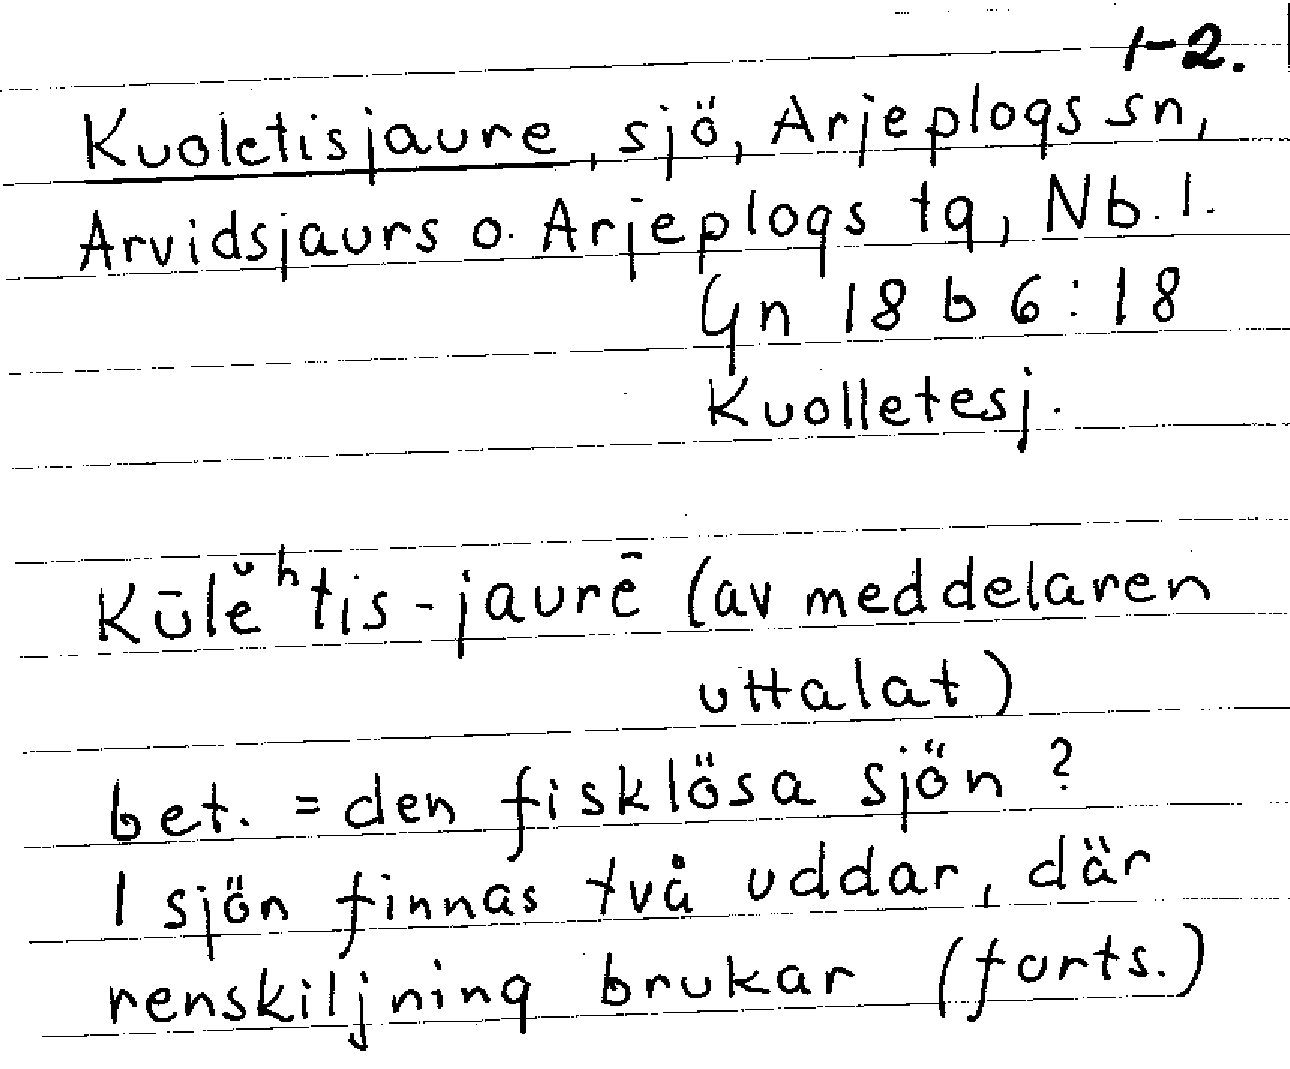 1-2.
Kuoletisjaure, sjö, Arjeplogs sn,
Arvidsjaurs o. Arjeplogs tg, Nb. l.
Gn 18 b 6:18
Kuolletesj.
Kūlĕʰtis-jaurē (av meddelaren
uttalat)
bet. = den fisklösa sjön?
I sjön finnas två uddar, där
renskiljning brukar (forts.)